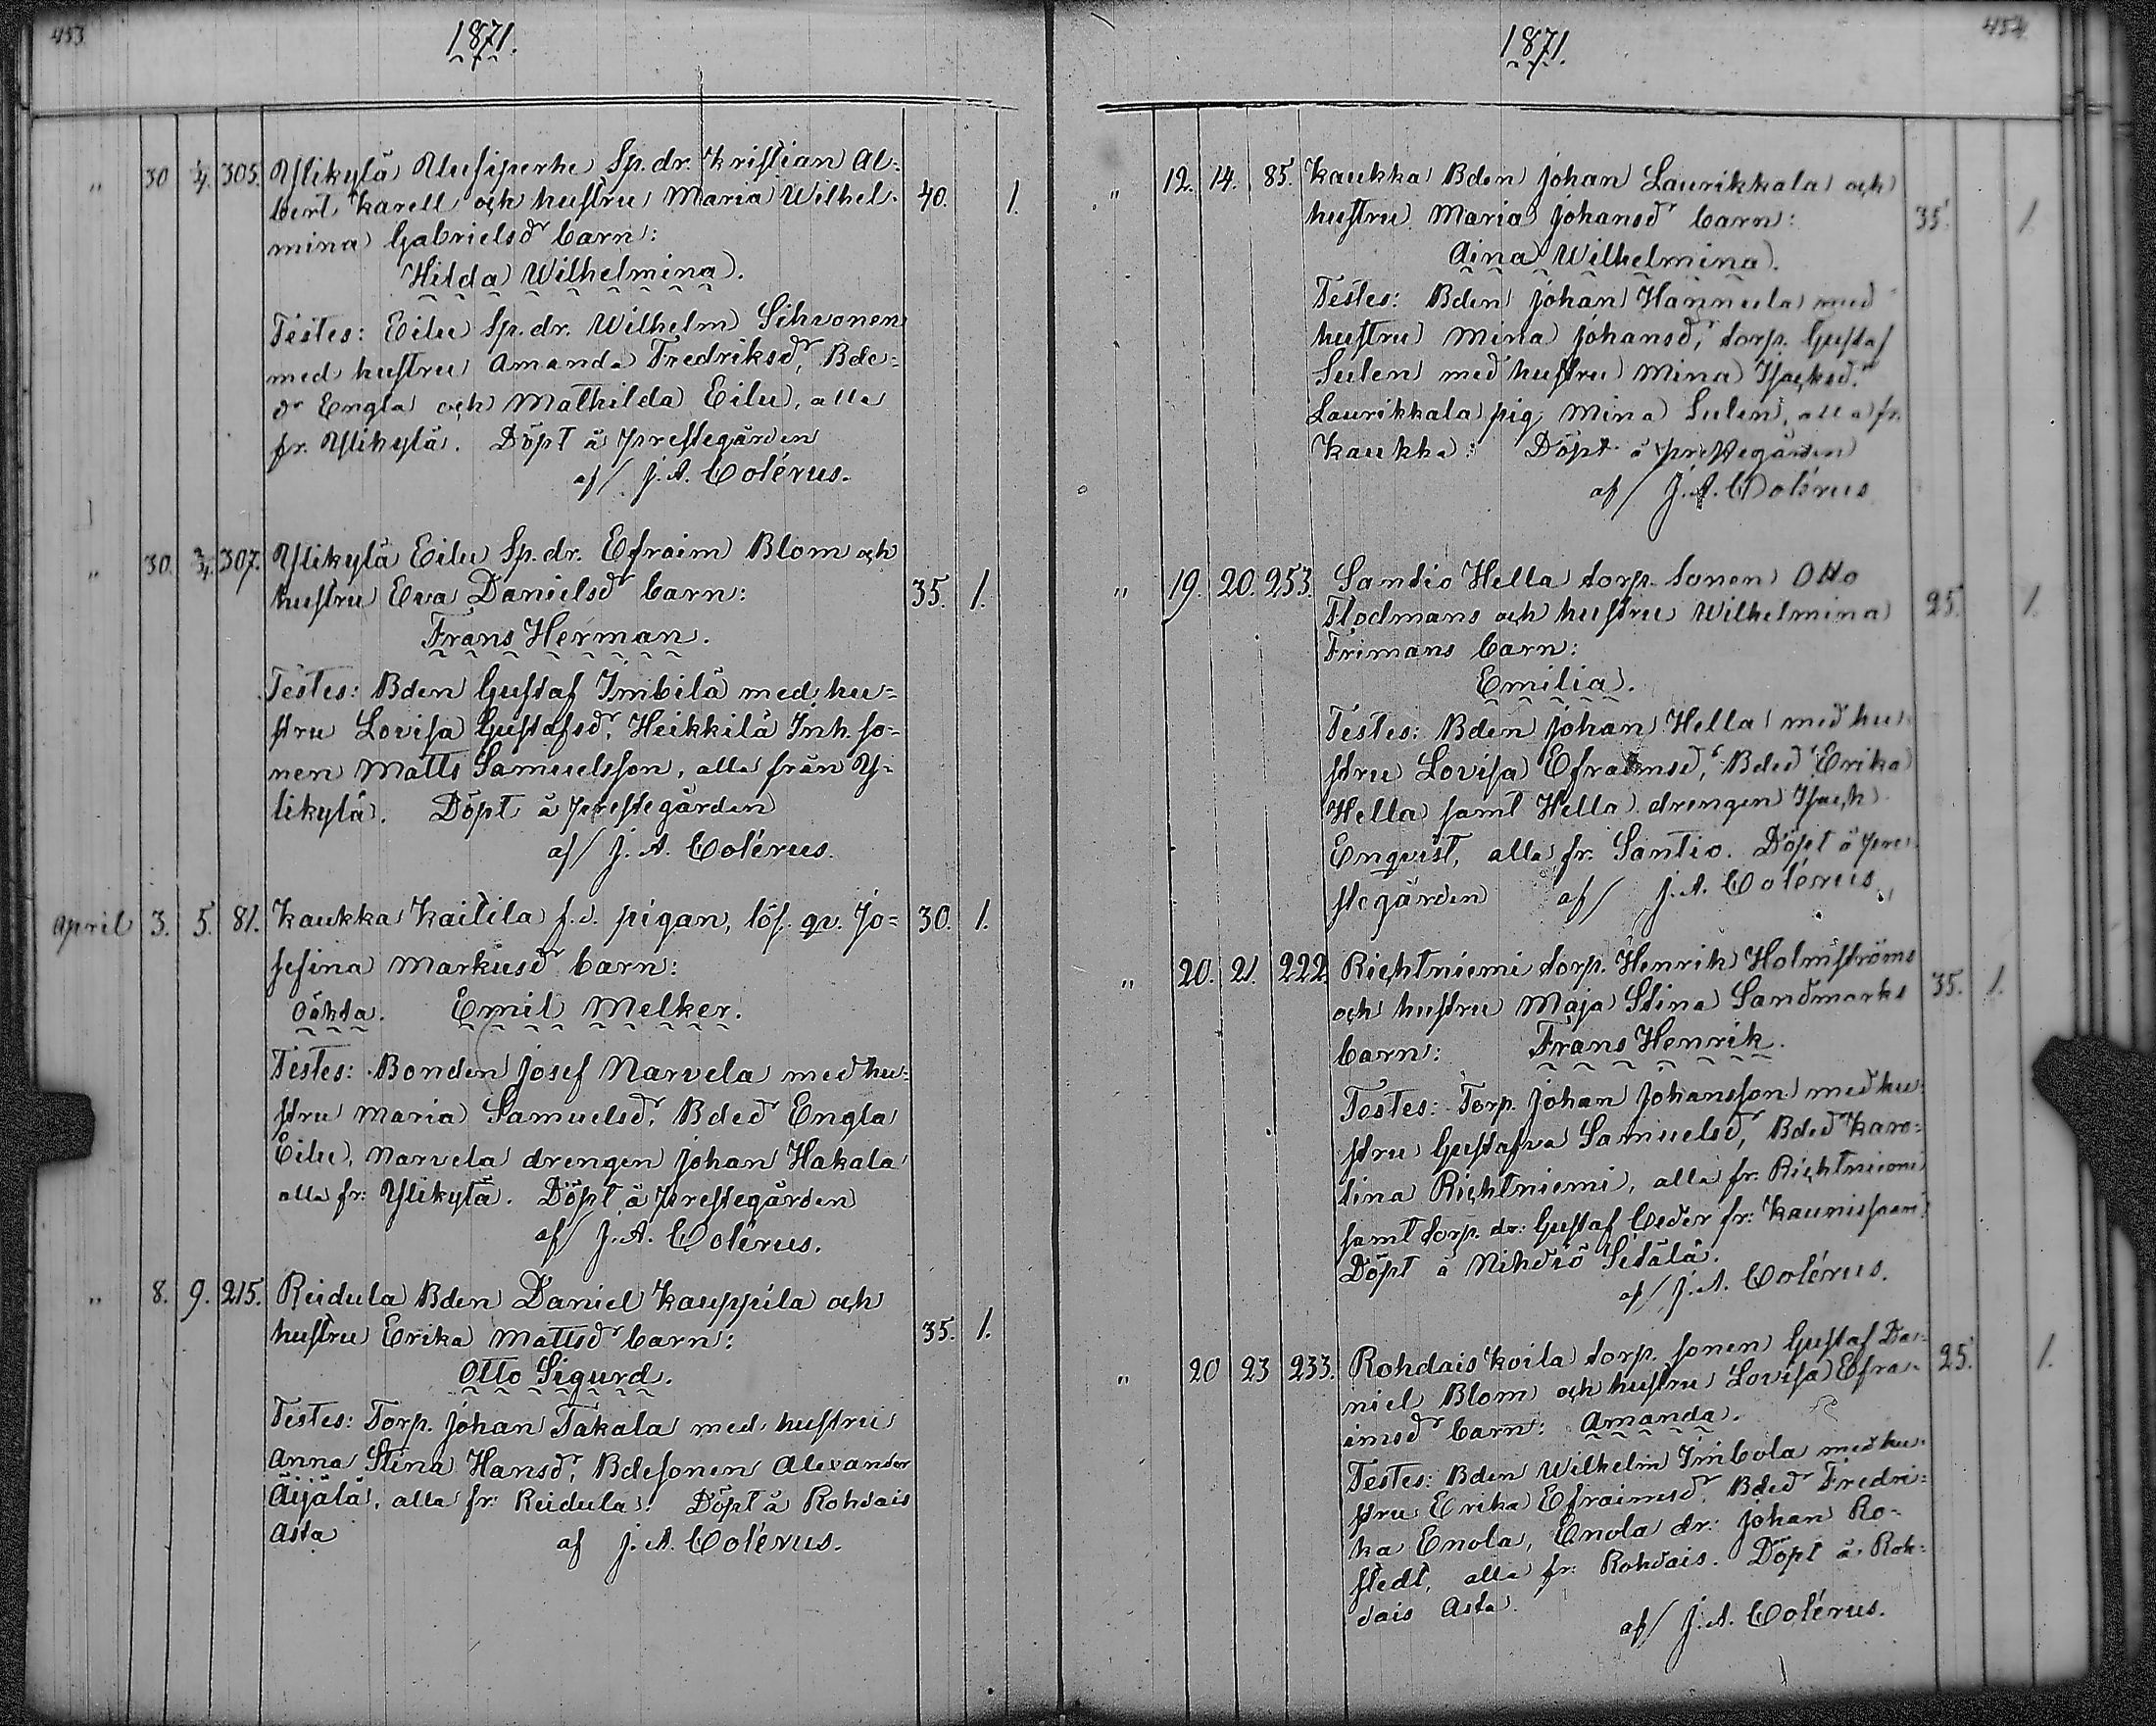 453
1871.
„ 30 3/4. 305. Ylikylä Uusiperhe Sp. dr. Kristian Al=
bert Karell och hustru Maria Wilhel- 40. 1.
mina Gabrielsdr barn:
Hilda Wilhelmina.
Testes: Eilu Sp. dr. Wilhelm Sihvonen
med hustru Amanda Fredriksdr, Bde=
dr Engla och Mathilda Eilu, alla
fr. Ylikylä. Döpt å prestegården
af/ J. A. Colérus.
„ 30. 3/4. 307. Ylikylä Eilu Sp. dr. Efraim Blom och
hustru Eva Danielsdr barn: 35. 1.
Frans Herman.
Testes: Bden Gustaf Imbilä med hu=
stru Lovisa Gustafsdr, Heikkilä Inh. so=
nen Matts Samuelsson, alla från Y-
likylä. Döpt å prestegården
af/ J. A. Colérus.
April 3. 5. 81. Kaukka Kaitila f. d. pigan, lös. qv. Jo= 30. 1.
sefina Markusdr barn:
Oäkta. Emil Melker.
Testes: Bonden Josef Narvela med hu=
stru Maria Samuelsdr, Bdedr Engla
Eilu, Narvela drengen Johan Hakala
alla fr: Ylikylä. Döpt å prestegården
af/ J. A. Colérus.
„ 8. 9. 215. Reidula Bden Daniel Kauppila och
hustru Erika Mattsdr barn: 35. 1.
Otto Sigurd.
Testes: Torp. Johan Takala med hustru
Anna Stina Hansdr, Bdesonen Alexander
Äijälä, alla fr: Reidula. Döpt å Rohdais
Asta af J. A. Colérus.
454
1871.
„ 12. 14. 85. Kaukka Bden Johan Laurikkala och
hustru Maria Johansdr barn: 35. 1.
Aina Wilhelmina.
Testes: Bden Johan Hannula med
hustru Mina Johansdr, torp. Gustaf
Sulen med hustru Mina Isaksdr.
Laurikkala pig. Mina Sulen, alla fr.
Kaukka: Döpt å prestegården
af/ J. A. Colérus
„ 19. 20. 253. Santio Hella torp. sonen Otto
Flodmans och hustru Wilhelmina 25. 1.
Frimans barn:
Emilia.
Testes: Bden Johan Hella med hu-
stru Lovisa Efraimsdr, Bdedr Erika
Hella samt Hella drengen Isack
Enqvist, alla fr. Santio. Döpt å pre-
stegården af/ J. A. Colérus
„ 20. 21. 222. Richtniemi torp. Henrik Holmströms
och hustru Maja Stina Sandmarks 35. 1.
barn: Frans Henrik.
Testes: Torp. Johan Johansson med hu-
stru Gustafva Samuelsdr, Bdedr Karo=
lina Richtniemi, alla fr. Richtniemi
samt torp. dr: Gustaf Ceder fr: Kaunissaari
Döpt å Nihdiö Setälä.
af/ J. A. Colérus.
„ 20 23 233. Rohdais Koila torp. sonen Gustaf Da- 25. 1.
niel Blom och hustru Lovisa Efra-
imsdr barn: Amanda.
Testes: Bden Wilhelm Imbola med hu-
stru Erika Efraimsdr. Bdedr Fredri=
ka Enola, Enola dr: Johan Ro-
stedt, alla fr: Rohdais. Döpt å Roh=
dais Asta.
af/ J. A. Colérus.